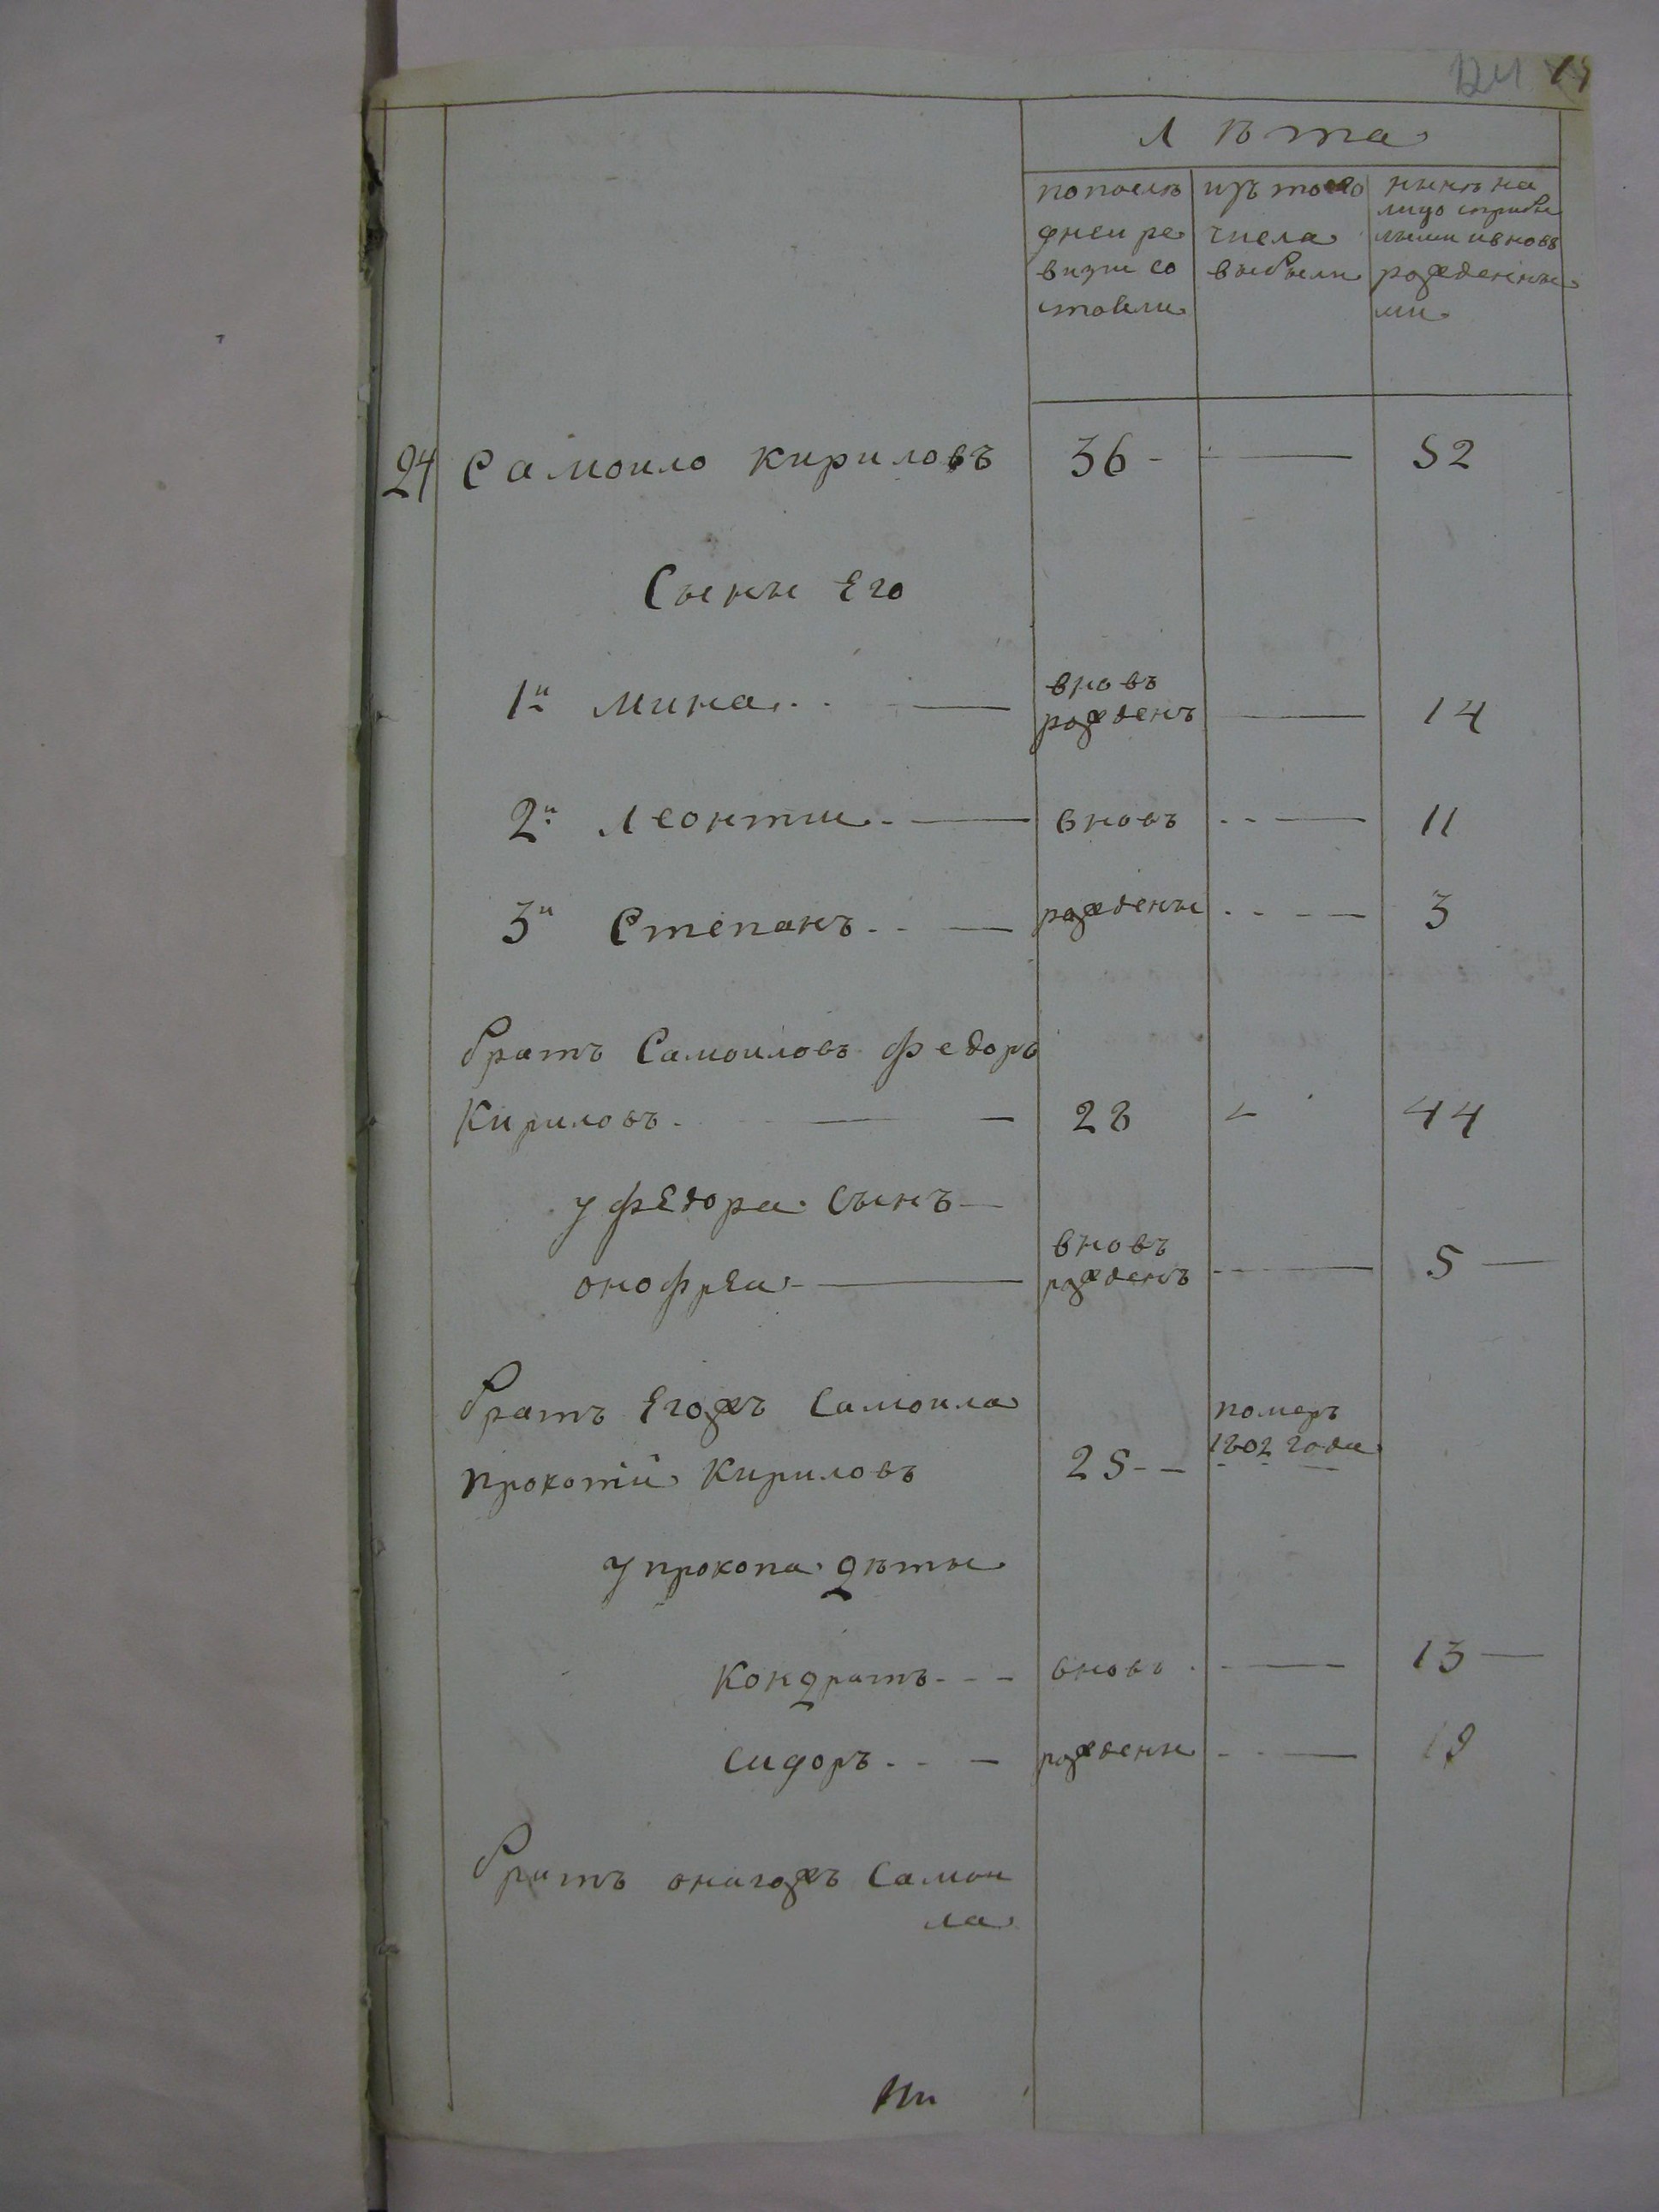 124
Лѣта
по послѣ
дней ре
визии со
стояли
изъ того
числа
выбыли
нынѣ на
лицо с прибы
лыми и вновь
рожденны
ми
24 Самоило Кириловъ 36 - — 52
Сыны Его
1й Мина — вновь рожденъ — 14
2й Леонтии — вновь — 11
3й Степанъ — рождены — 3
братъ Самоиловъ Федоръ
Кириловъ — 28 44
у Федора Сынъ —
онофреи — вновь рожденъ — 5 —
братъ Егожъ Самоила
Прокопіи Кириловъ 25 - - померъ 1802 года
у прокопа дѣты
Кондратъ - - - вновь — 13 —
Сидоръ - - — рождены — 19
братъ оногожъ Самои
ла